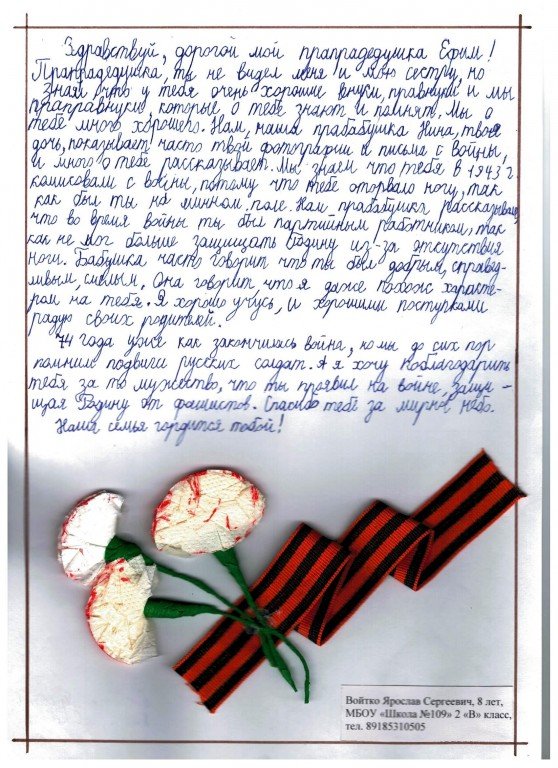 Здравствуй, дорогой мой прапрадедушка Ефим!
Прапрадедушка, ты не видел меня и мою сестру, но
знай, что у тебя очень хорошие внуки, правнуки и мы
праправнуки, которые о тебе знают и помнят. Мы о
тебе много хорошего. Нам, наша прабабушка Нина, твоя
дочь, показывает часто твои фотографии и письма с войны,
и много о тебе рассказывает. Мы знаем что тебя в 1943 г.
комисовали с войны, потому что тебе оторвало ногу, так
как был ты на минном поле. Нам прабабушка рассказывала,
что во время войны ты был партийным работником, так
как не мог больше защищать Родину из-за отсутствия
ноги. Бабушка часто говорит что ты был добрым, справед-
ливым, смелым. Она говорит, что я даже похож характе-
ром на тебя. Я хорошо учусь, и хорошими поступками
радую своих родителей.
74 года уже как закончилась война, но мы до сих пор
помним подвиги русских солдат. А я хочу поблагодарить
тебя за то мужество, что ты проявил на войне, защи-
щая Родину от фашистов. Спасибо тебе за мирное небо.
Наша семья гордится тобой!
Войтко Ярослав Сергеевич, 8 лет,
МБОУ «Школа №109» 2 «В» класс,
тел. 89185310505